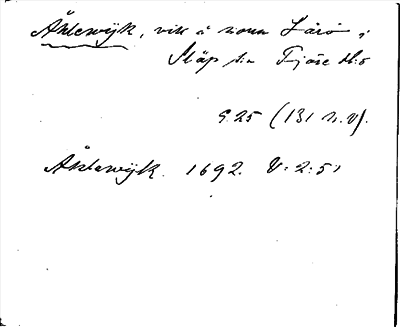 Åklewijk, vik å norra Särö i
Släp s:n Fjäre h:d
S. 25 (131 n.v).
Åklewijk. 1692. V: 2: 51